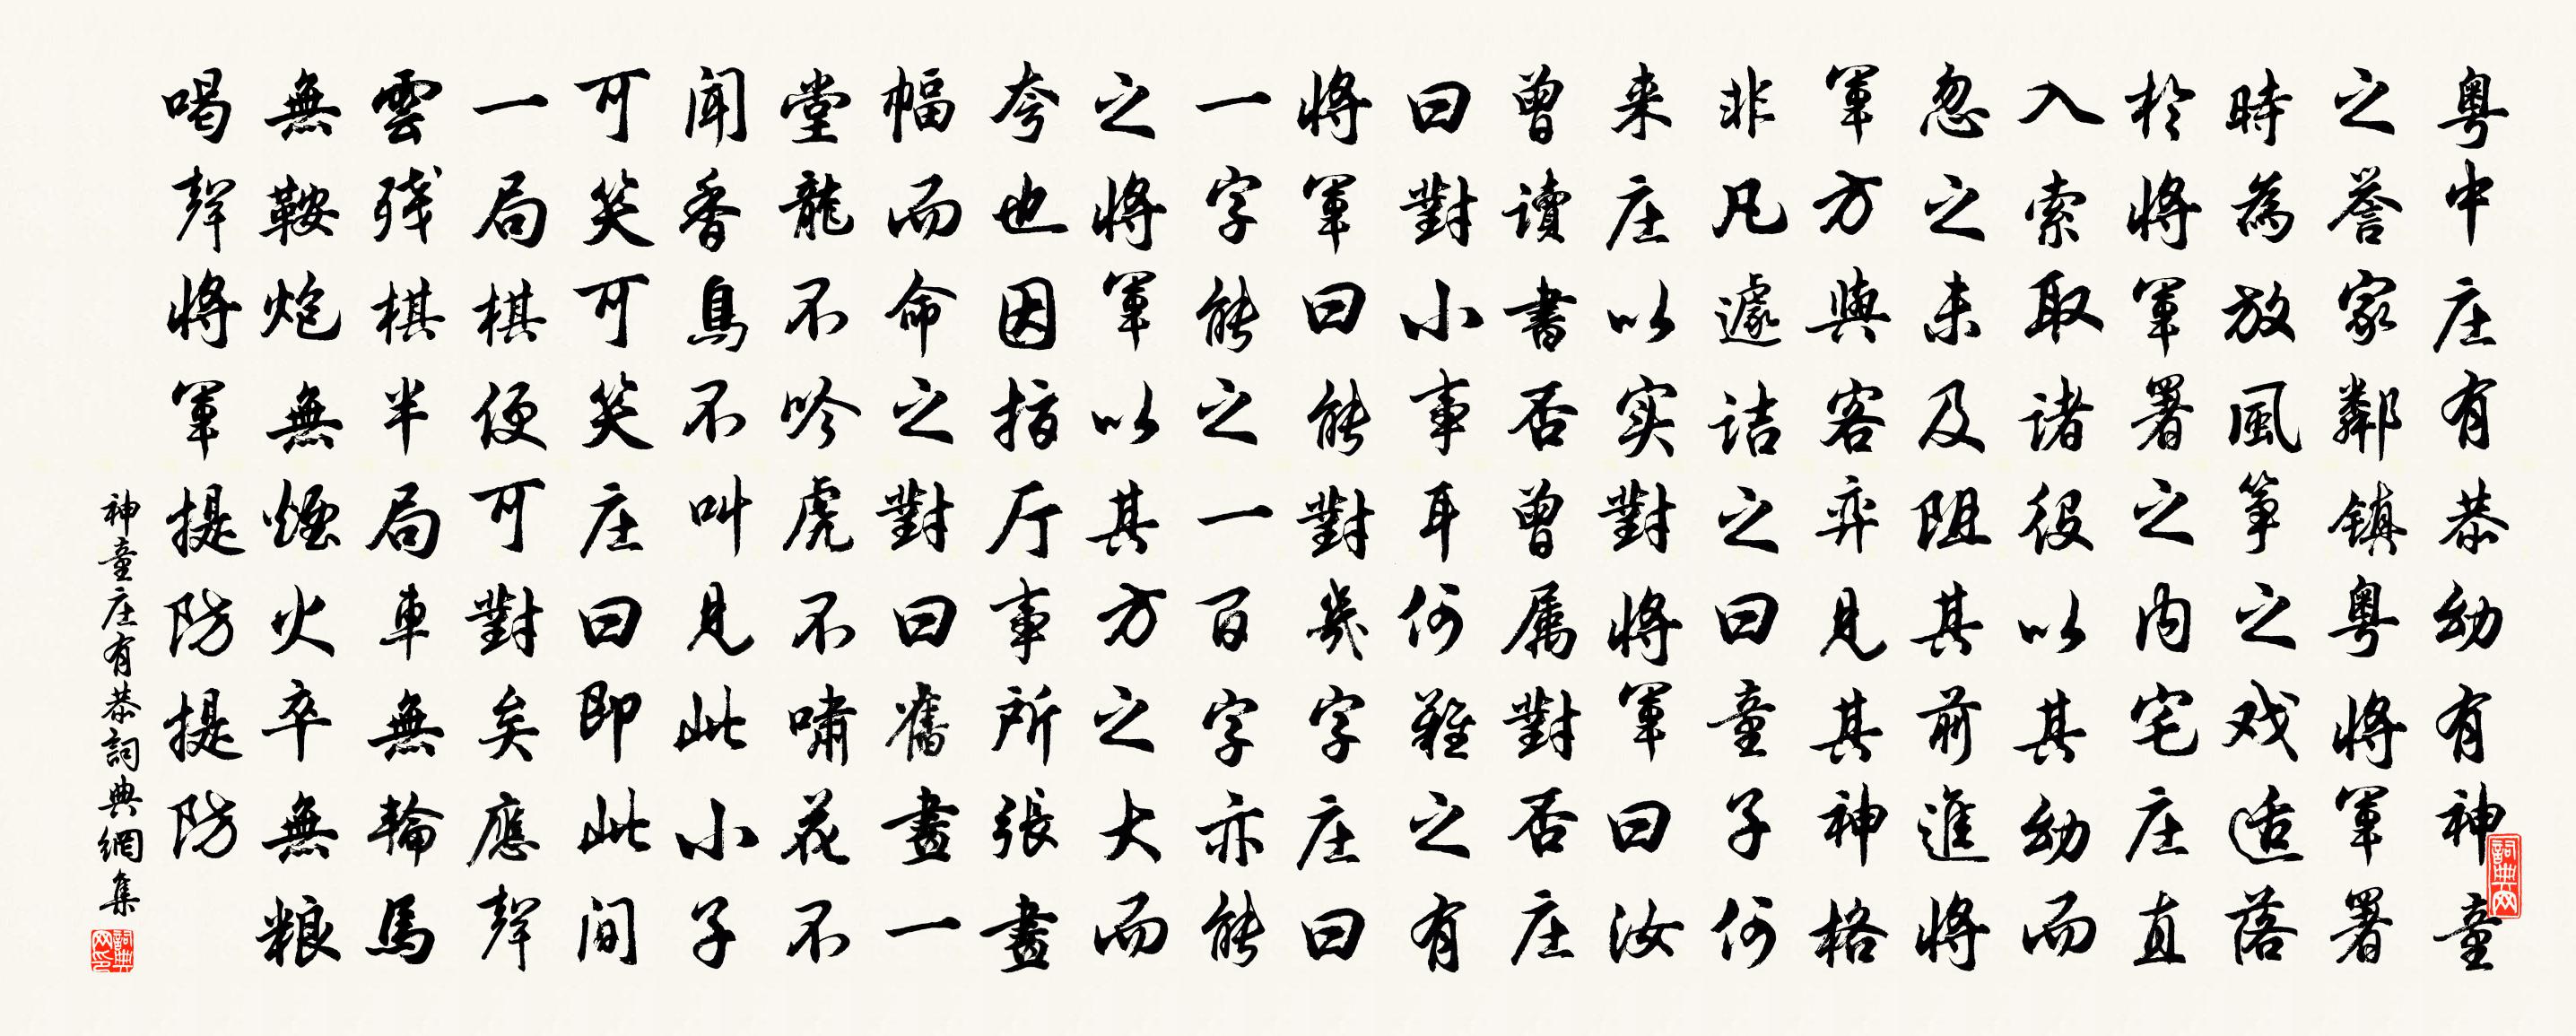 粤中庄有恭幼有神童
之誉家鄰镇粤將軍署
時為放風筝之戏适落
於將軍署之内宅庄直
入索取诸役以其幼而
忽之未及阻其前進將
軍方與客弈見其神格
非凡遽诘之曰童子何
来庄以实對將軍曰汝
曾讀書否曾属對否庄
曰對小事耳何難之有
將軍曰能對幾字庄曰
一字能之一百字亦能
之將軍以其方之大而
夸也因指厅事所張畫
幅而命之對曰舊畫一
堂龍不吟虎不嘯花不
闻香鳥不叫見此小子
可笑可笑庄曰即此间
一局棋便可對矣應聲
雲残棋半局車無輪馬
無鞍炮無煙火卒無粮
喝聲將軍提防提防
神童庄有恭詞典網集
詞典网
詞典网印